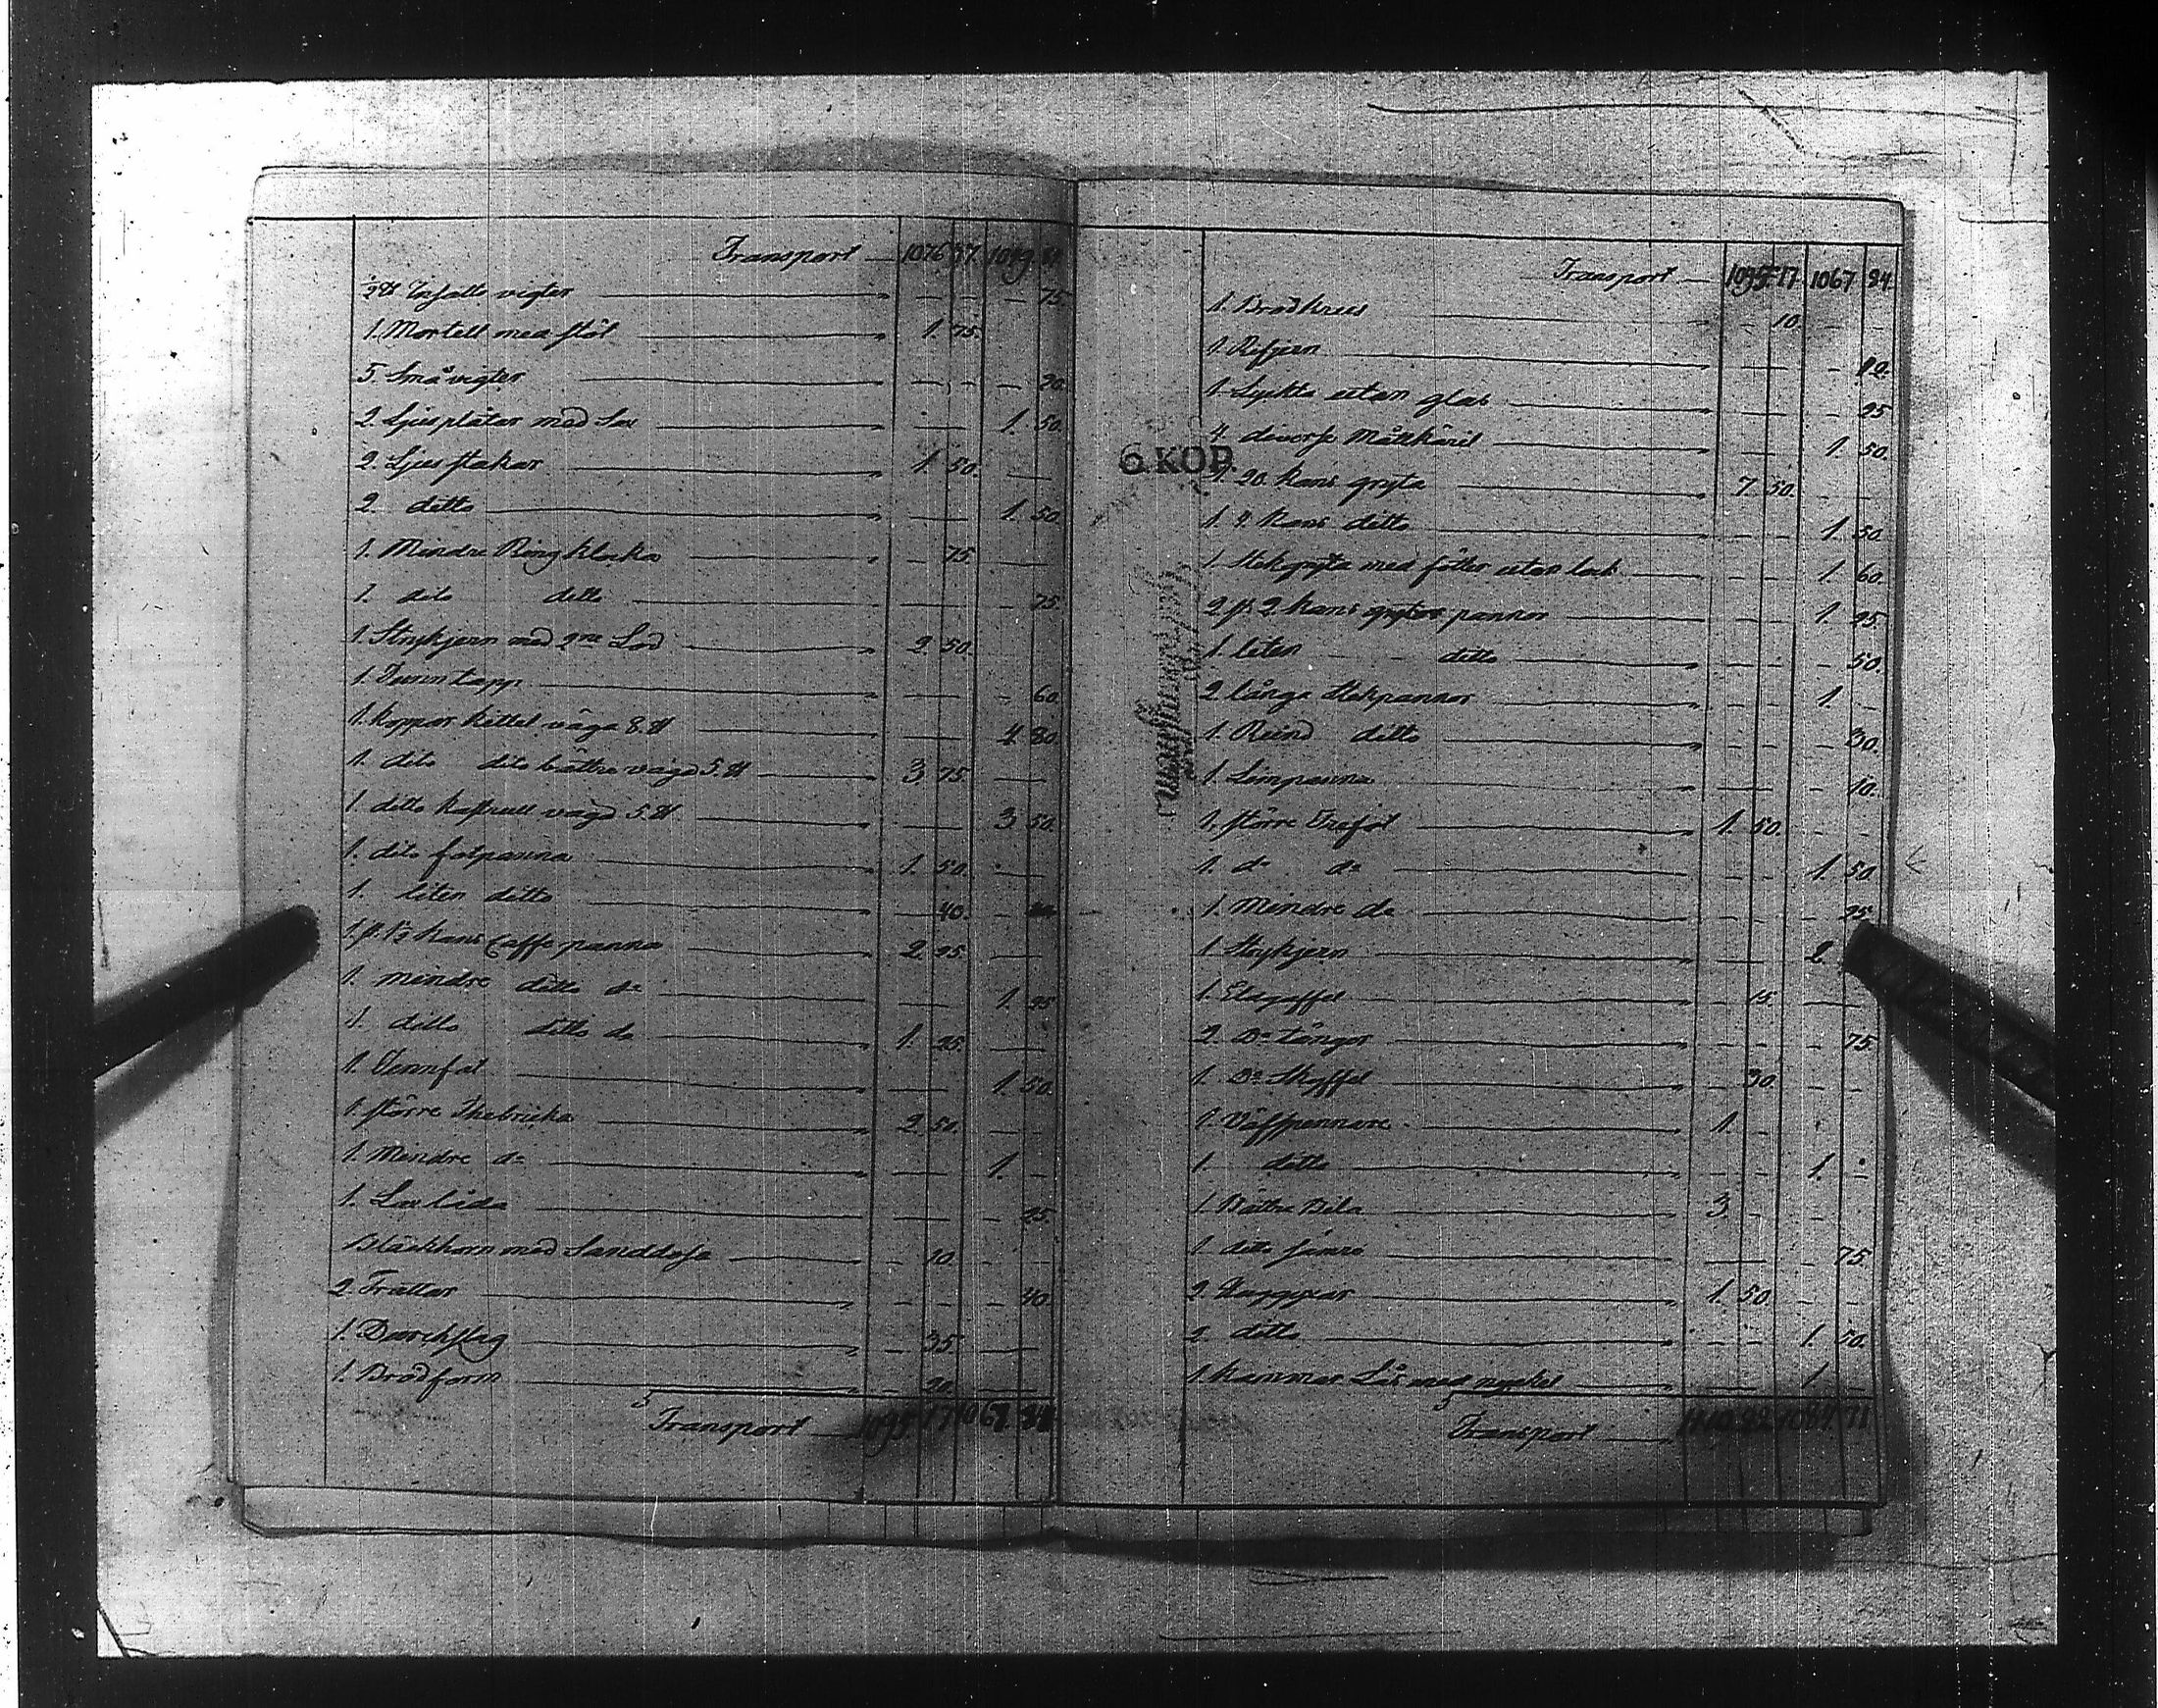 Transport 1076 37. 1049 84
2 ℔ Isfalls vigter 75.
1. Mortell med stöt 1. 75.
5. Små vigter 20.
2. Ljusplåtar med Sax 1. 50.
2. Ljusstakar 1. 50.
2 ditto 1. 50.
1. Mindre Ringklocka 75.
1. dito ditto 75.
1. Strykjern med 2ne Lod 2. 50.
1. Tunntapp 60.
1. Koppar kittel vägd 8 ℔ 4 80.
1. dito dito bättre vägd 5. ℔ 3. 75.
1. ditto kastrull vägd 5. ℔ 3 50.
1. dito fotpanna 1. 50.
1. liten ditto 40.
1. st. 1½ kans Caffe panna 2. 25.
1. mindre ditto do 1. 25
1. ditto ditto do 1. 25.
1. Tennfat 1. 50.
1. större Thebricka 2. 50.
1. Mindre do 1.
1. Sax låda 25.
Bläckhorn med Sanddosa 10.
2. Trattar 40.
1. Dorchslag 35.
1. Brödform 20.
Transport 1095. 17 1067. 84
Transport 1095. 17 1067 84.
1. Brödkrus 10.
1. Rifjern 12.
1. Lyckta utan glas 25
4. diverse Måttkäril 1. 50.
6 KOP.
1. 20. kans gryta 7. 50.
1. 4. kans ditto 1. 50.
1. Stekgryta med fötter utan lock 1. 60.
2 st. 2 kans grytor pannor 1. 25.
1. liten ditto 50.
2. långa Stekpannor 1.
1. Rund ditto 30.
1. Limpanna 10.
1. större Trefot 1. 50.
1. do do 1. 50
1. Mindre do 25.
1. Strykjern 2.
1. Eldgaffel 15
2. Do tänger 75
1. Do Skyffel 30.
1. Väfspennare 1.
1. ditto 1.
1. Bättre Bila 3.
1. ditto sämre 75.
2. 1. 50.
2 ditto 1. 50.
1. Kammar Lås med nyckel 1.
Transport 1110. 22 1084. 71